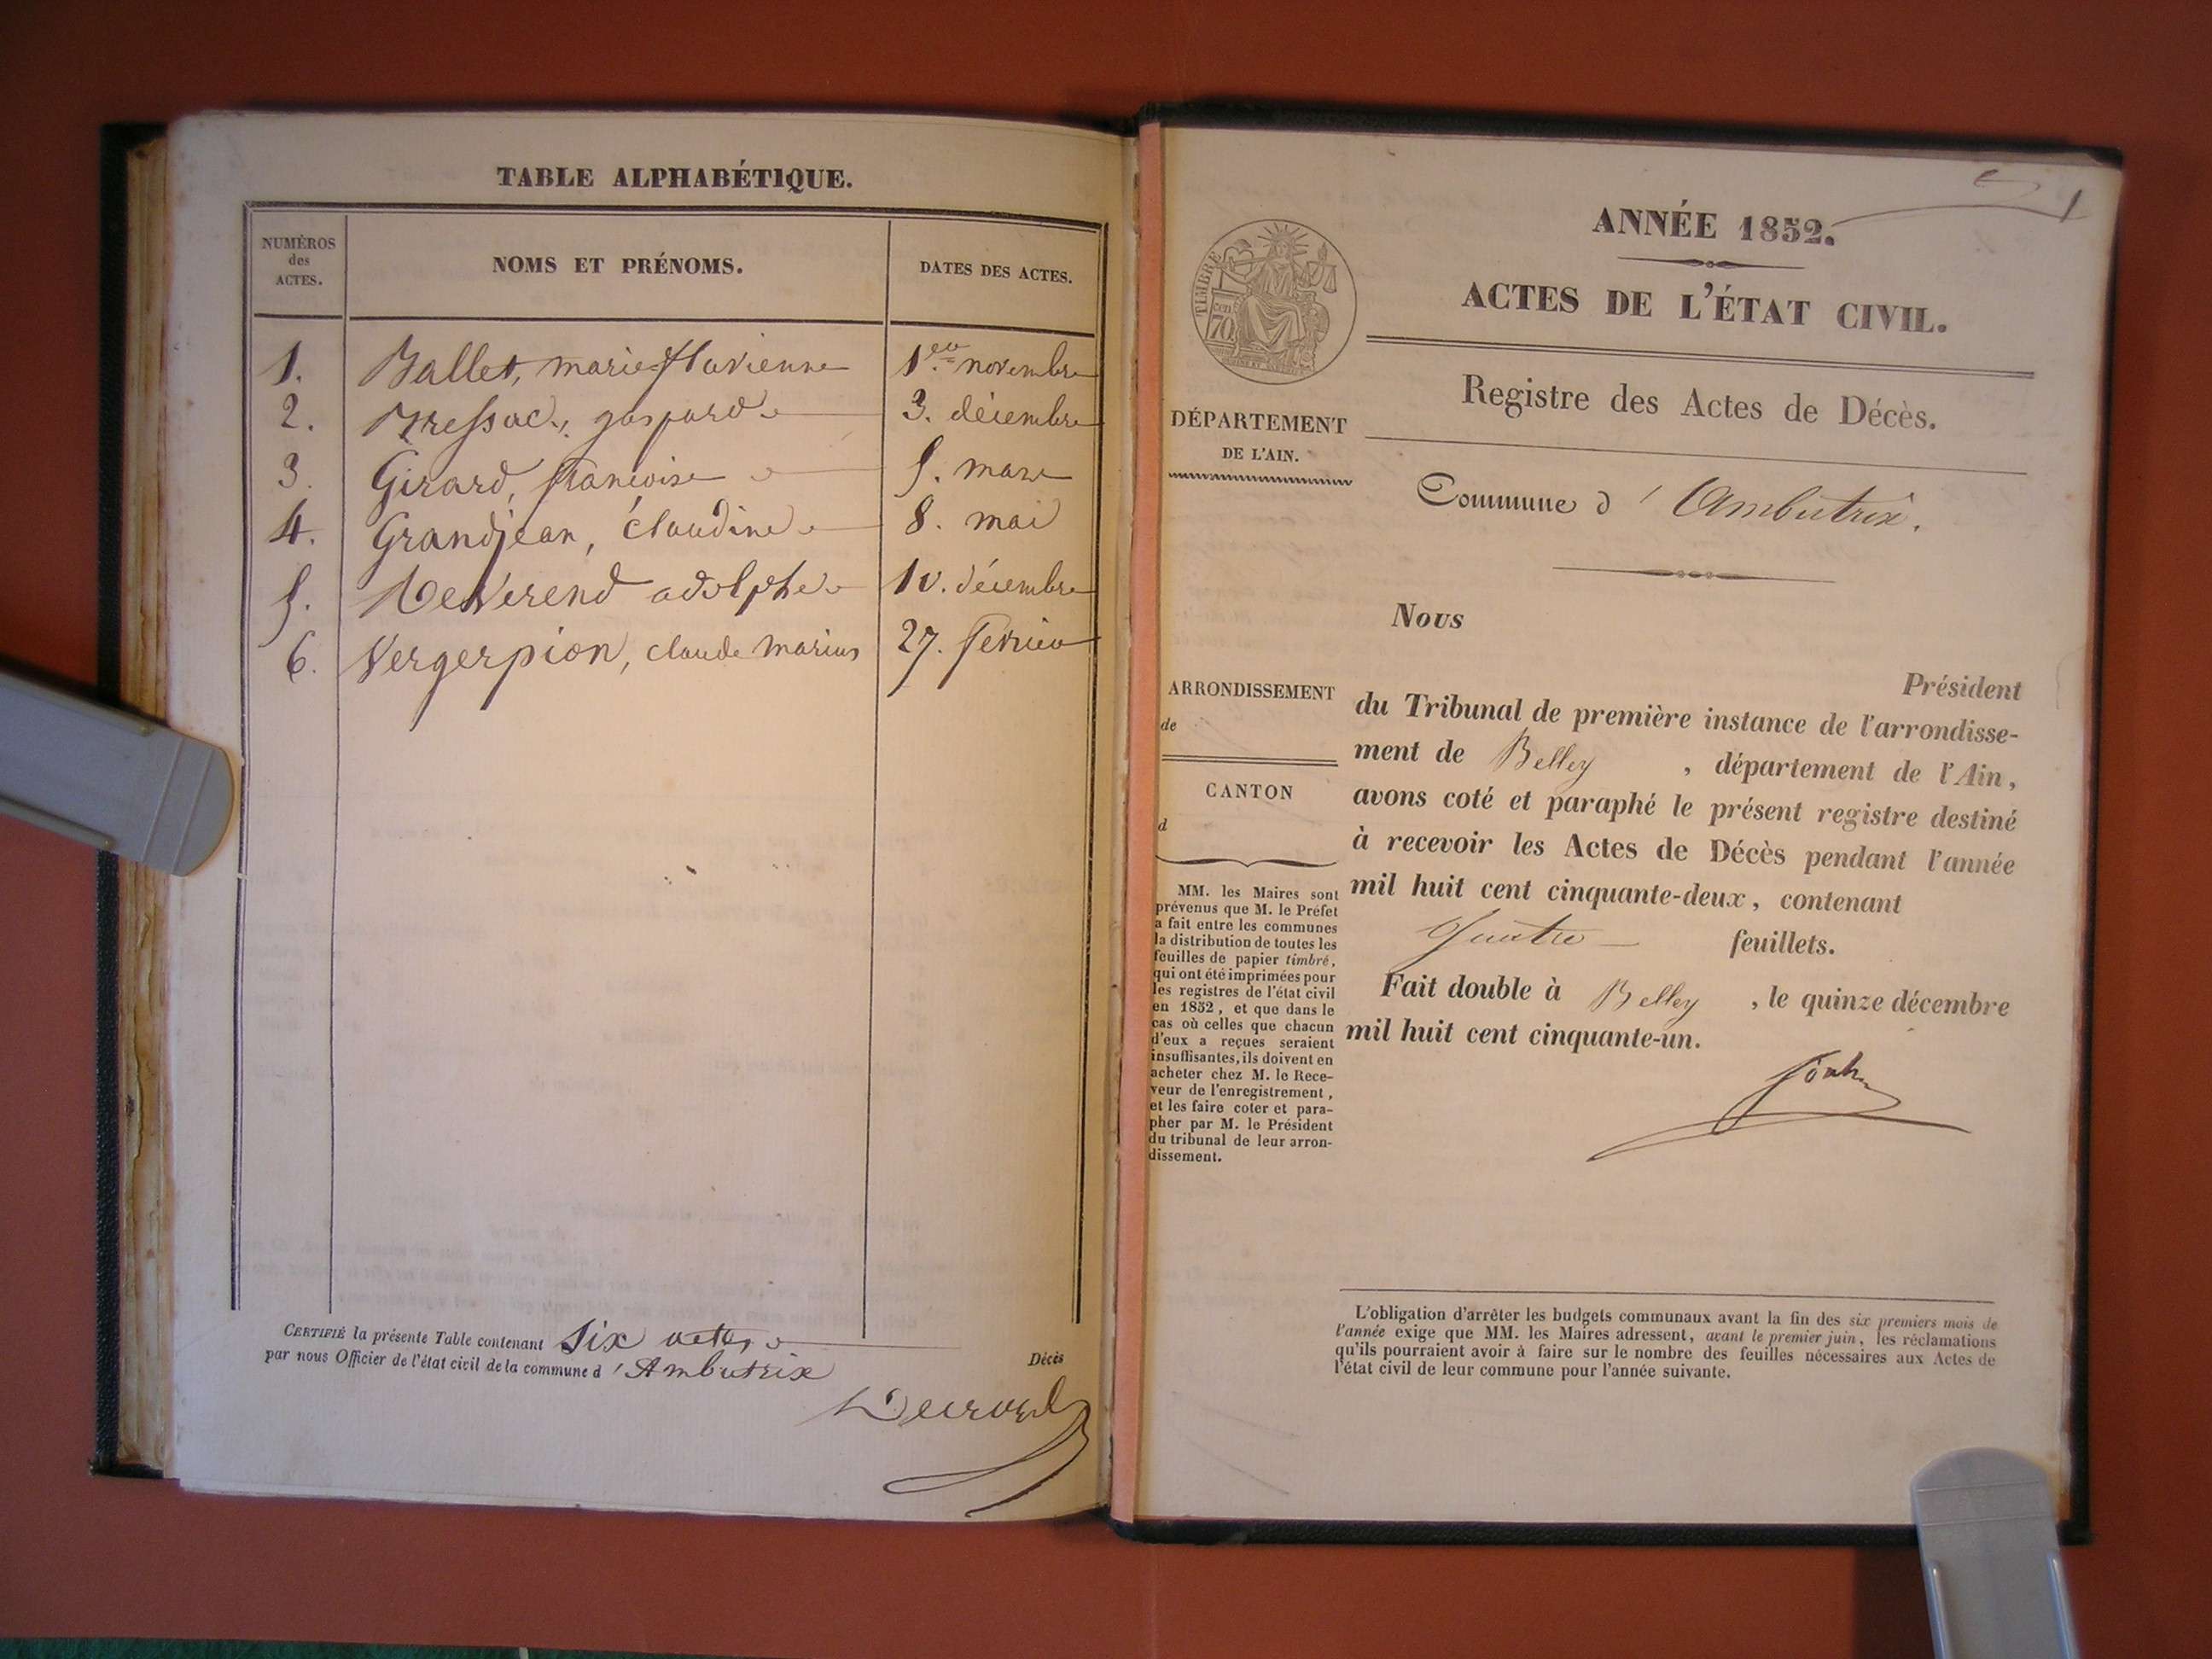 TABLE ALPHABÉTIQUE.
NUMÉROS
des
ACTES.
NOMS ET PRÉNOMS.
DATES DES ACTES.
1. Ballet, marie flavienne 1er novembre
2. Bressac, gaspard 3. décembre
3. Girard, francoise 5. mars
4. Grandjean, claudine 8. mai
5. Reverend adolphe 10. décembre
6. Vergerpion, claude marius 27. fevrier
CERTIFIÉ la présente Table contenant Six actes
par nous Officier de l'état civil de la commune d 'Ambutrix
Décès
ANNÉE 1852.
1
ACTES DE L'ÉTAT CIVIL.
TIMBRE
70
Registre des Actes de Décès.
DÉPARTEMENT
DE L'AIN.
Commune d 'Ambutrix.
Nous
Président
du Tribunal de première instance de l'arrondisse-
ment de Belley , département de l'Ain,
avons coté et paraphé le présent registre destiné
à recevoir les Actes de Décès pendant l'année
mil huit cent cinquante-deux, contenant
quatre feuillets.
Fait double à Belley , le quinze décembre
mil huit cent cinquante-un.
ARRONDISSEMENT
de
CANTON
d
MM. les Maires sont
prévenus que M. le Préfet
a fait entre les communes
la distribution de toutes les
feuilles de papier timbré,
qui ont été imprimées pour
les registres de l'état civil
en 1852, et que dans le
cas où celles que chacun
d'eux a reçues seraient
insuffisantes, ils doivent en
acheter chez M. le Rece-
veur de l'enregistrement,
et les faire coter et para-
pher par M. le Président
du tribunal de leur arron-
dissement.
L'obligation d'arrêter les budgets communaux avant la fin des six premiers mois de
l'année exige que MM. les Maires adressent, avant le premier juin, les réclamations
qu'ils pourraient avoir à faire sur le nombre des feuilles nécessaires aux Actes de
l'état civil de leur commune pour l'année suivante.